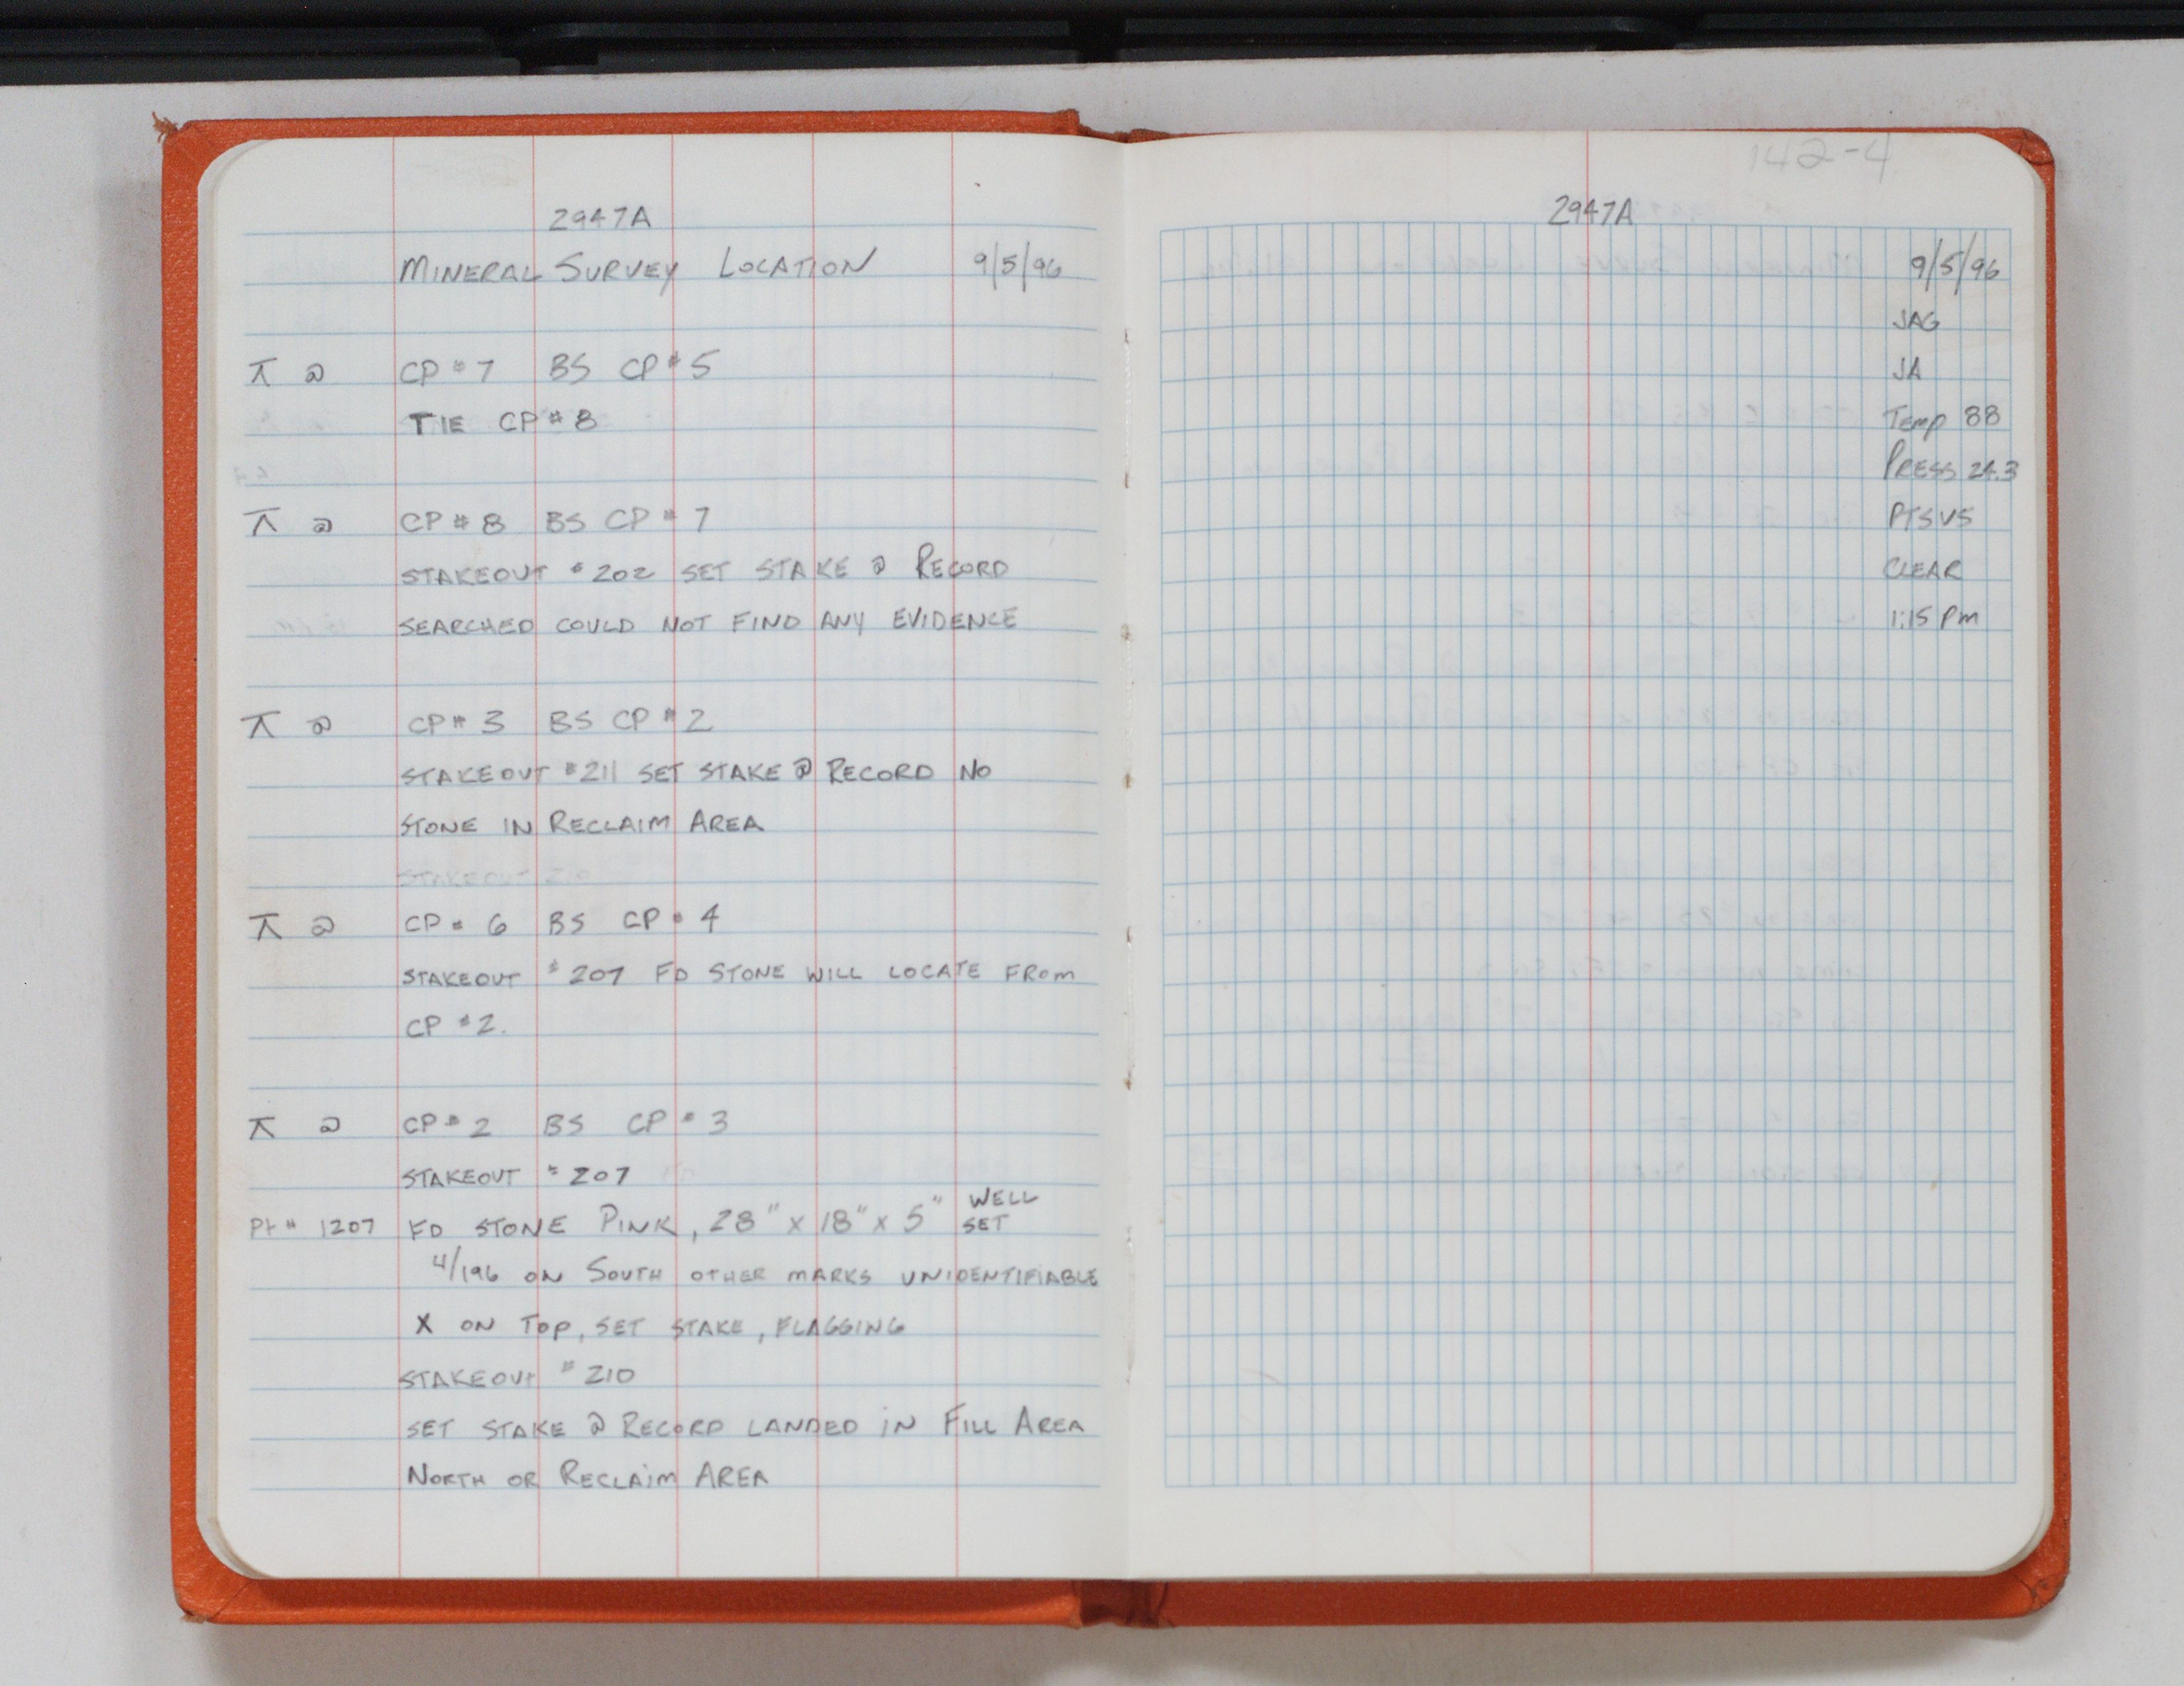 2947A
MINERAL SURVEY LOCATION 9/5/96
⊼ @ CP #7 BS CP #5
TIE CP #8
⊼ @ CP #8 BS CP #7
STAKEOUT #202 SET STAKE @ RECORD
SEARCHED COULD NOT FIND ANY EVIDENCE
⊼ @ CP #3 BS CP #2
STAKEOUT #211 SET STAKE @ RECORD NO
STONE IN RECLAIM AREA
STAKEOUT 210
⊼ @ CP # 6 BS CP # 4
STAKEOUT #207 FD STONE WILL LOCATE FROM
CP #2.
⊼ @ CP # 2 BS CP # 3
STAKEOUT # 207
Pt # 1207 FD STONE PINK, 28" x 18" x 5" WELL SET
4/196 ON SOUTH OTHER MARKS UNIDENTIFIABLE
X ON TOP, SET STAKE, FLAGGING
STAKEOUT # 210
SET STAKE @ RECORD LANDED IN FILL AREA
NORTH OR RECLAIM AREA
142-4
2947A
9/5/96
JAG
JA
TEMP 88
PRESS 24.3
CLEAR
1:15 PM